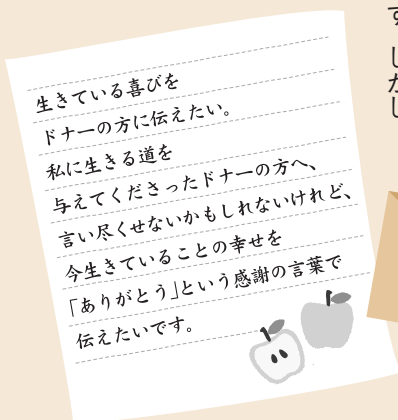 す。しかし
生きている喜びを
ドナーの方に伝えたい。
私に生きる道を
与えてくださったドナーの方へ、
言い尽くせないかもしれないけれど、
今生きていることの幸せを
「ありがとう」という感謝の言葉で
伝えたいです。